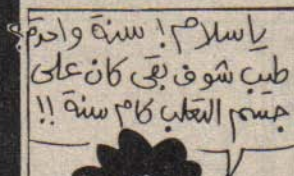 ياسلام! سنة واحدة؟
طيب شوف بقى كان على
جسم التعلب كام سنة!!